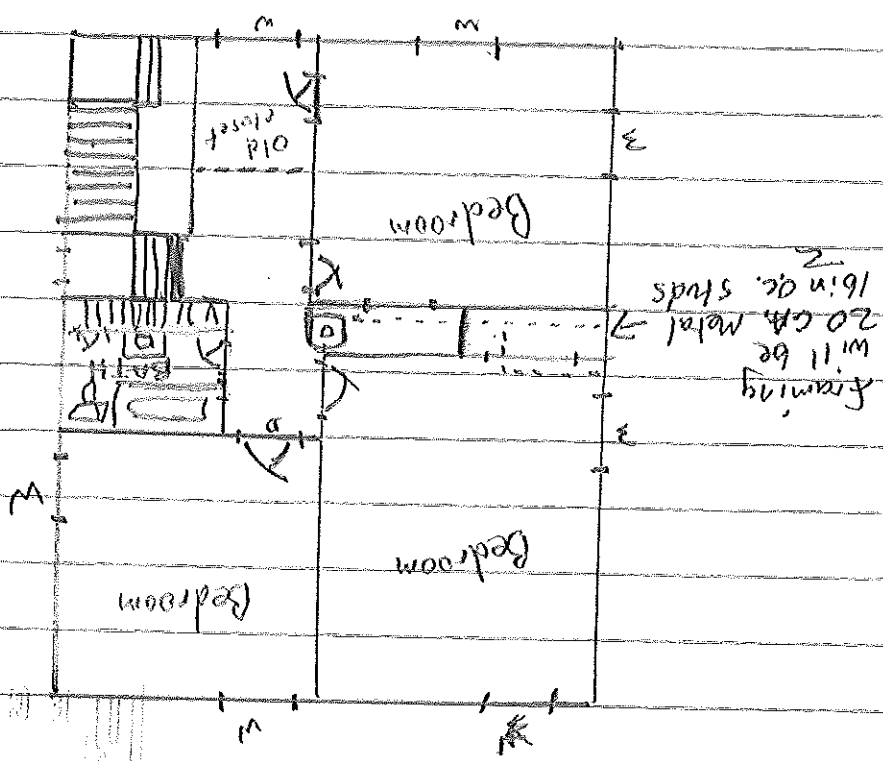 W
W
Bedroom
Bedroom
W
W
D
Framing
will be
20 GA. Metal
16 in O.C. studs
BATH
Bedroom
W
Old
closet
W
W